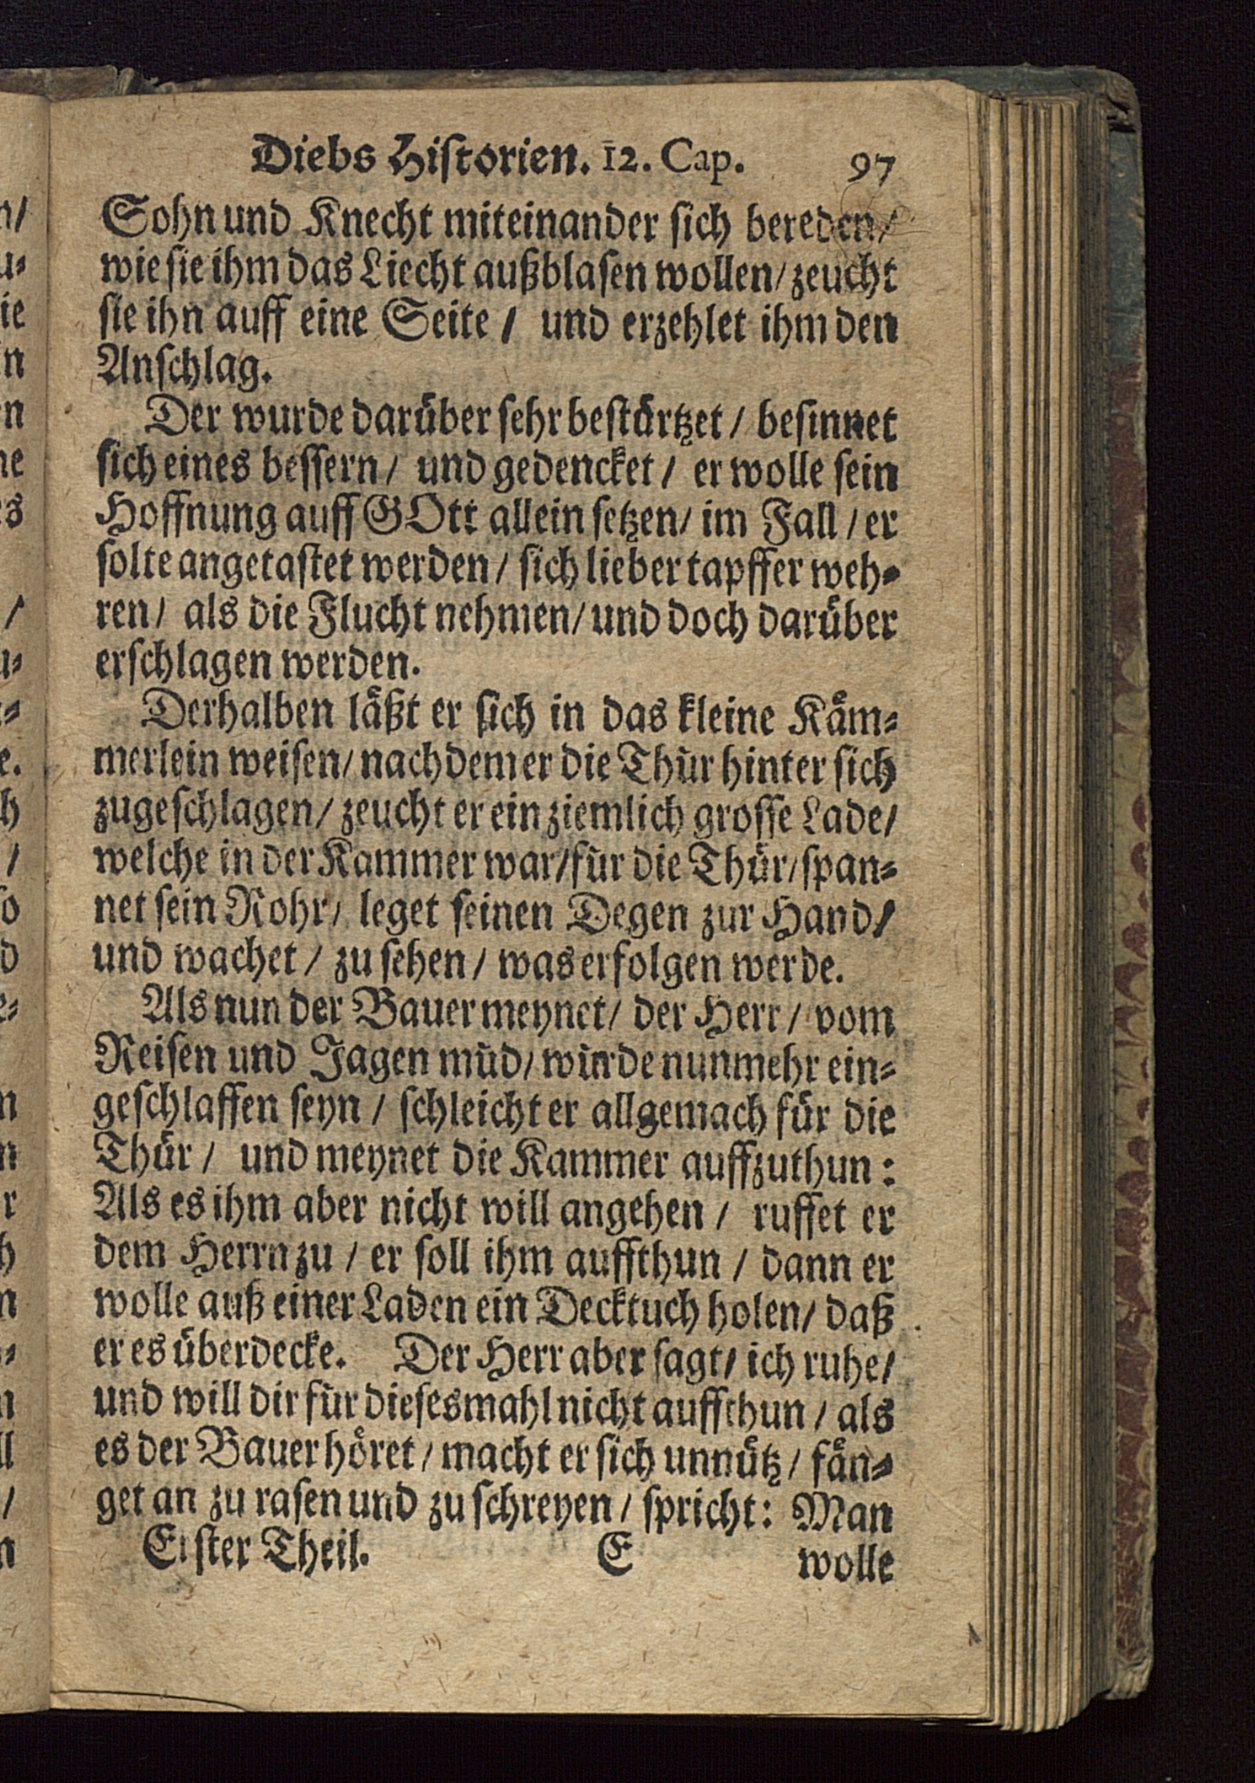 Diebs Historien. 12. Cap. 97
Sohn und Knecht miteinander sich bereden/
wie sie ihm das Liecht außblasen wollen/ zeucht
sie ihn auff eine Seite / und erzehlet ihm den
Anschlag.
Der wurde darüber sehr bestürtzet / besinnet
sich eines bessern / und gedencket / er wolle sein
Hoffnung auff GOtt allein setzen/ im Fall / er
solte angetastet werden / sich lieber tapffer weh-
ren / als die Flucht nehmen/ und doch darüber
erschlagen werden.
Derhalben läßt er sich in das kleine Käm-
merlein weisen/ nachdem er die Thür hinter sich
zugeschlagen/ zeucht er ein ziemlich grosse Lade/
welche in der Kammer war/für die Thür/ span-
net sein Rohr/ leget seinen Degen zur Hand/
und wachet / zu sehen / was erfolgen werde.
Als nun der Bauer meynet/ der Herr / vom
Reisen und Jagen müd/ würde nunmehr ein-
geschlaffen seyn / schleicht er allgemach für die
Thür / und meynet die Kammer auffzuthun :
Als es ihm aber nicht will angehen / ruffet er
dem Herrn zu / er soll ihm auffthun / dann er
wolle auß einer Laden ein Decktuch holen/ daß
er es überdecke. Der Herr aber sagt/ ich ruhe/
und will dir für diesesmahl nicht auffthun / als
es der Bauer höret / macht er sich unnütz / fän-
get an zu rasen und zu schreyen / spricht: Man
Erster Theil. E wolle